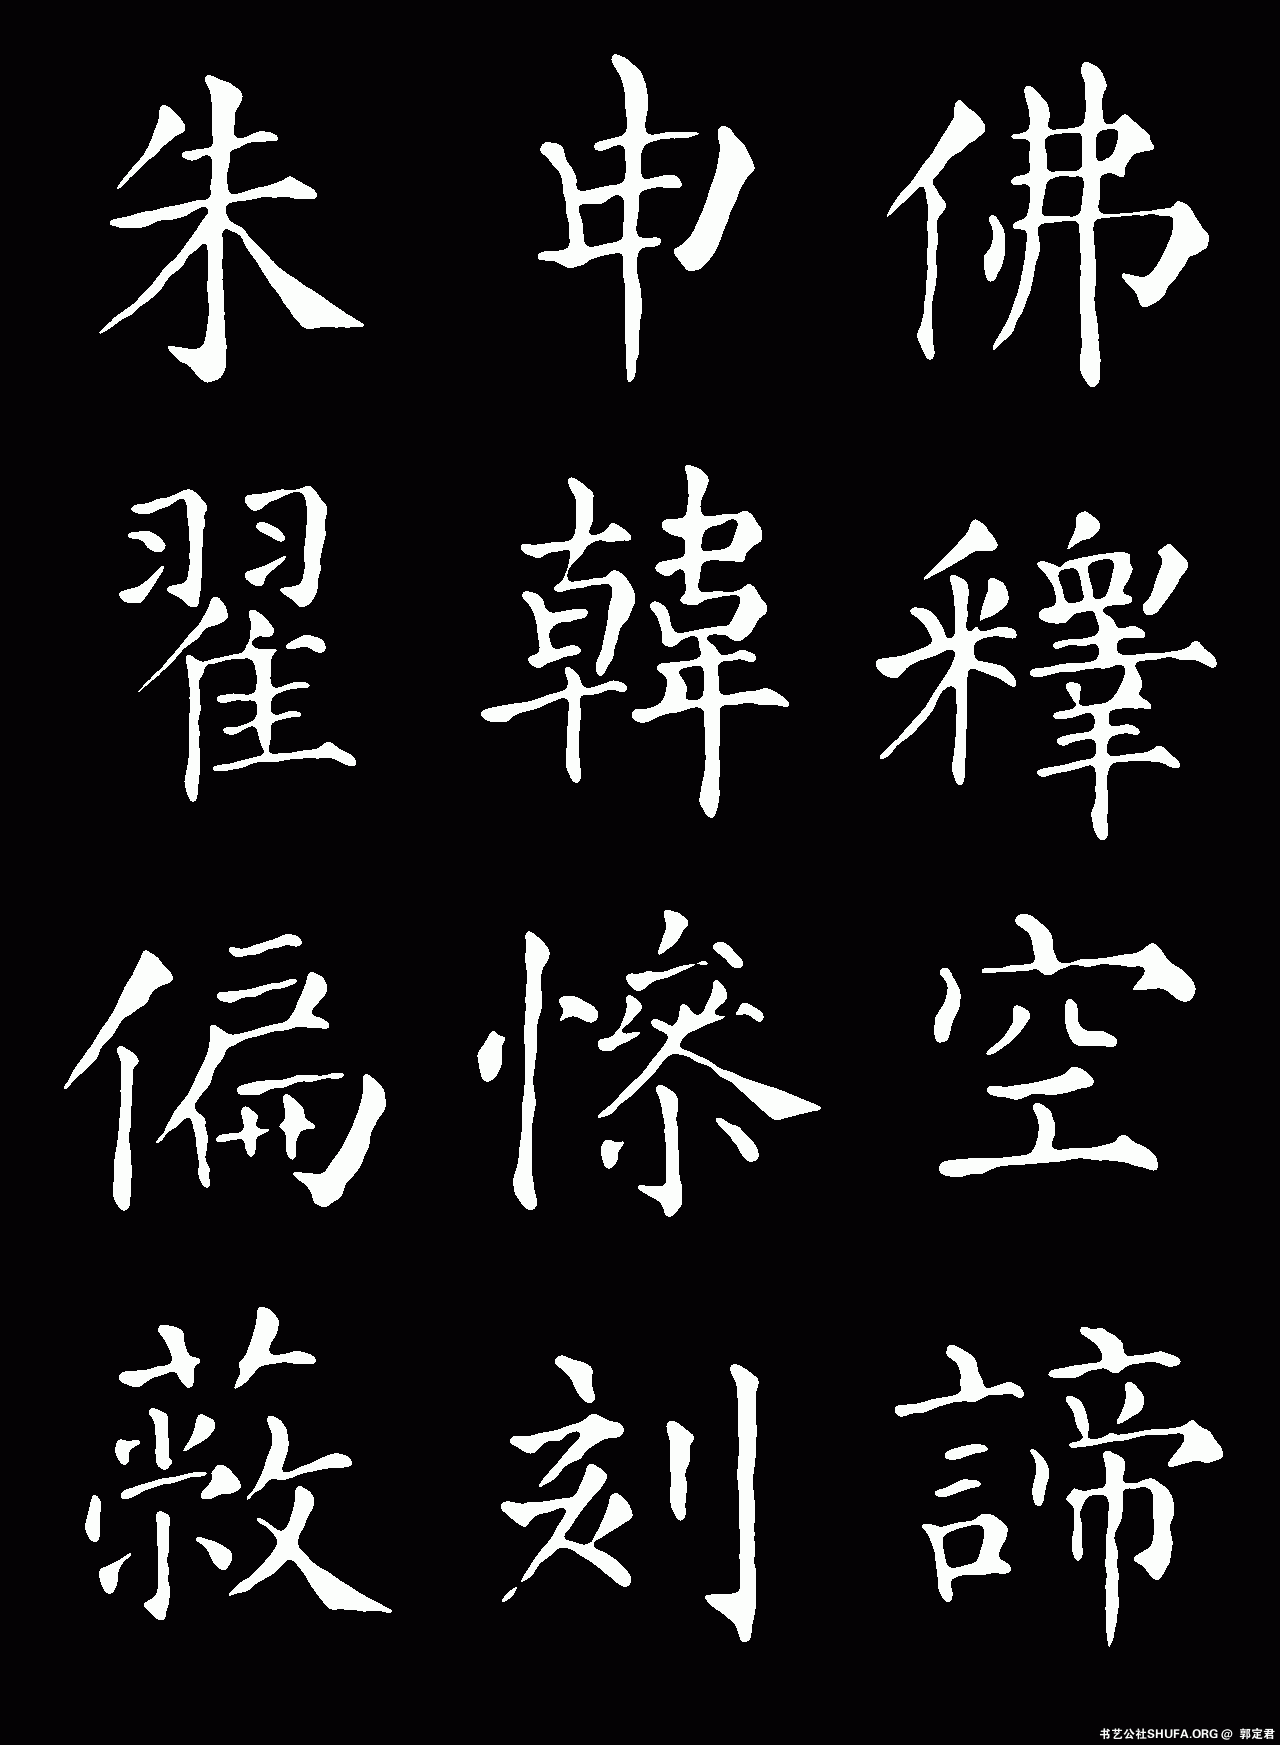 佛釋空諦
申韓慘刻
朱翟偏蔽
书艺公社SHUFA.ORG @ 郭定君